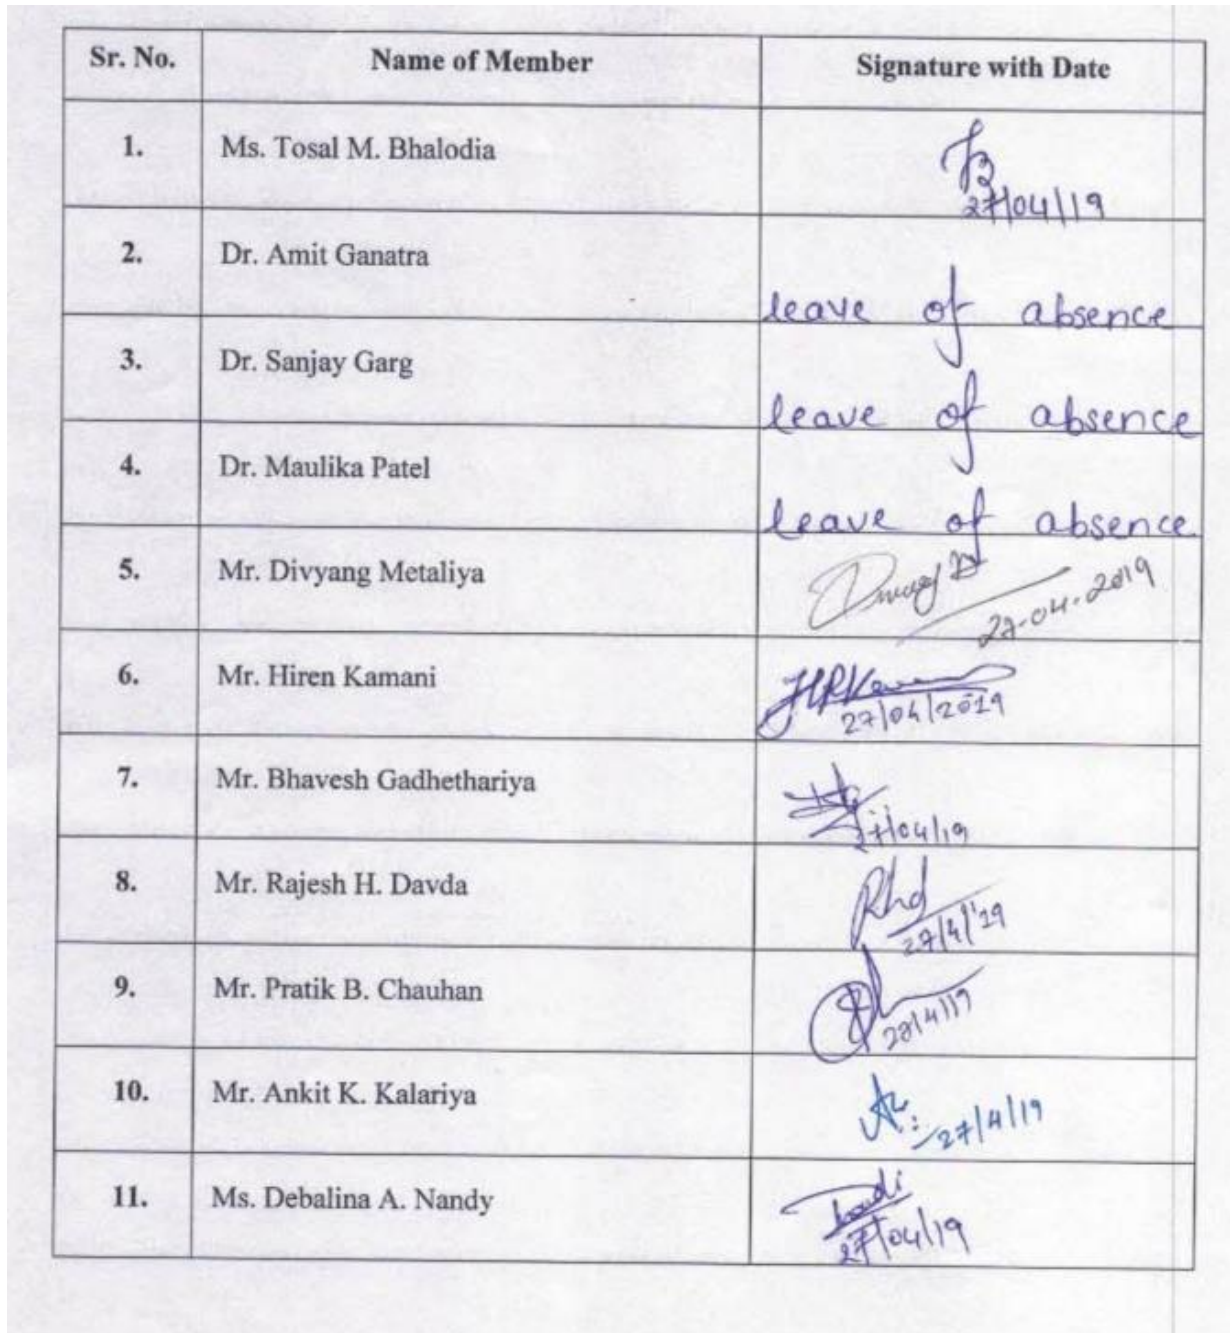 Sr. No. Name of Member Signature with Date
1. Ms. Tosal M. Bhalodia
27/04/19
2. Dr. Amit Ganatra leave of absence
3. Dr. Sanjay Garg leave of absence
4. Dr. Maulika Patel leave of absence
5. Mr. Divyang Metaliya
27-04-2019
6. Mr. Hiren Kamani
27/04/2019
7. Mr. Bhavesh Gadhethariya
27/04/19
8. Mr. Rajesh H. Davda Rhd
27/4/'19
9. Mr. Pratik B. Chauhan
27/4/19
10. Mr. Ankit K. Kalariya
27/4/19
11. Ms. Debalina A. Nandy
27/04/19